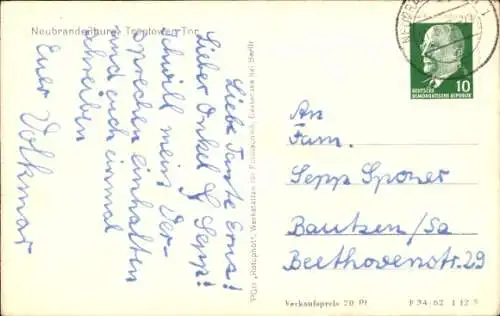 Neubrandenburg, Treptower Tor
Liebe Tante Erna!
Lieber Onkel Sepp!
Ich will mein Ver-
sprechen einhalten
und euch einmal
schreiben
Euer Volkmar
VEB „Rotophot“, Werkstätten für Fotochemie, bei Berlin
NEUBRA
DEUTSCHE
DEMOKRATISCHE REPUBLIK
10
An
Fam.
Sepp Sponer
Bautzen/Sa
Beethovenstr. 29
Verkaufspreis 20 Pf
P 34/62